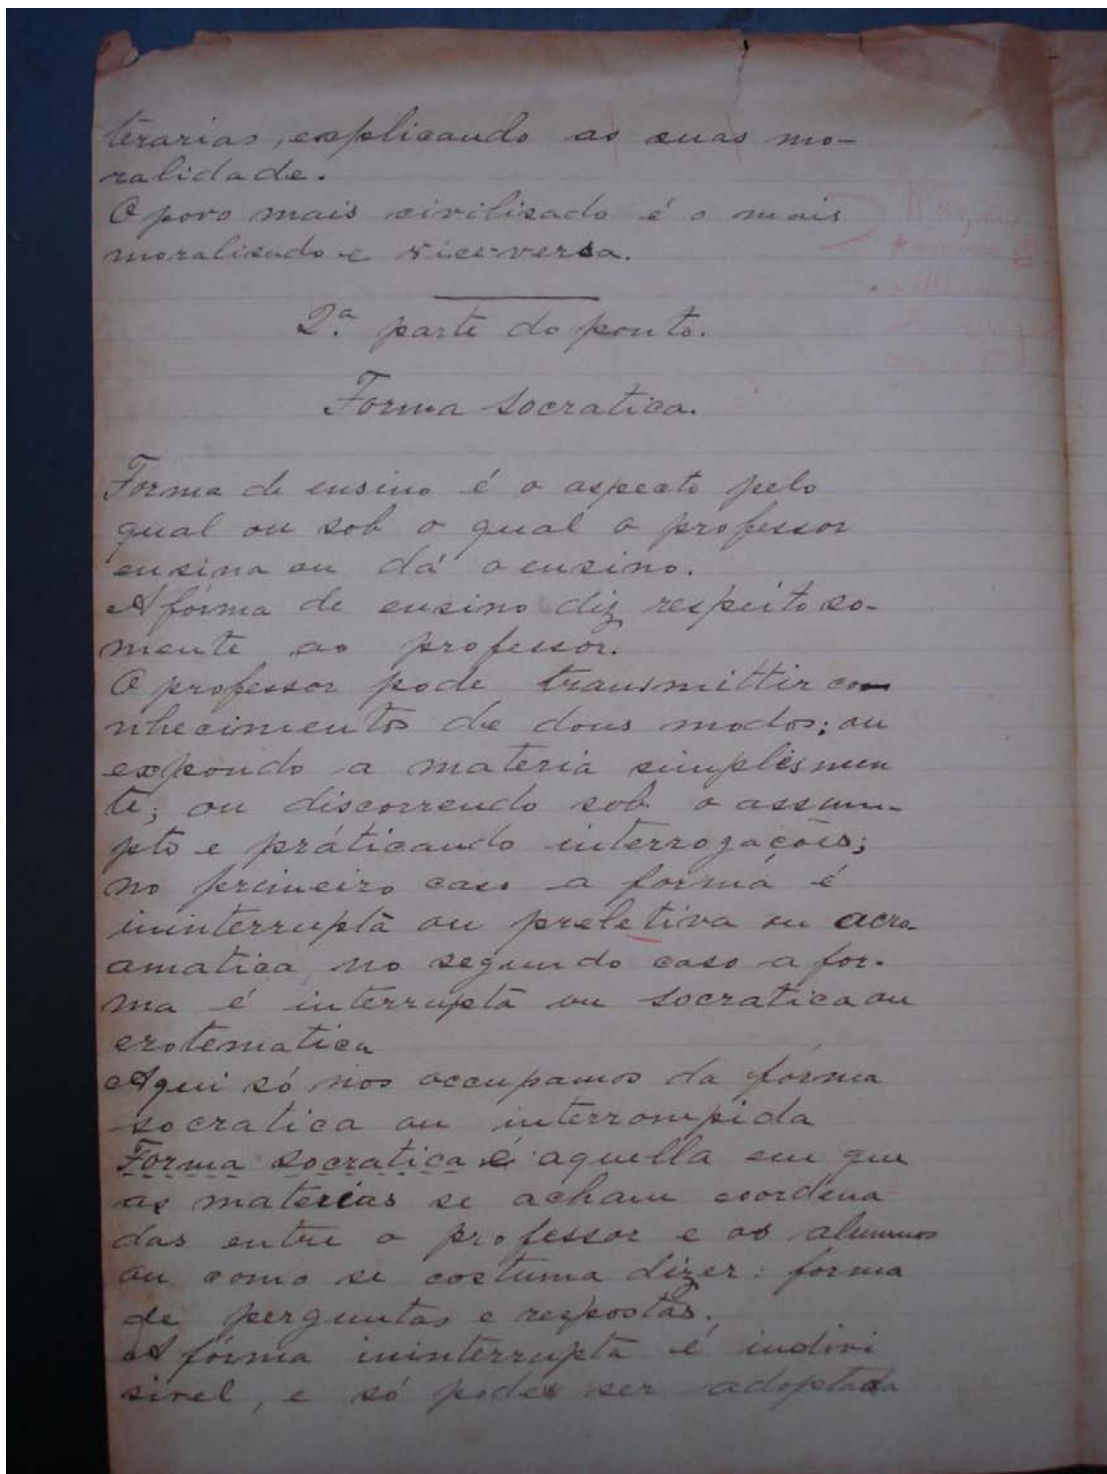 terarias, explicando as suas mo-
ralidade.
O povo mais civilisado é o mais
moralisado e vice-versa.
2.ª parte do ponto.
Forma Socratica.
Forma de ensino é o aspecto pelo
qual ou sob o qual o professor
ensina ou dá o ensino.
A fórma de ensino diz respeito so-
mente ao professor.
O professor pode transmittir co-
nhecimentos de dous modos; ou
expondo a materia simplesmen
te; ou discorrendo sob o assum-
pto e práticando interrogações;
no primeiro caso a forma é
ininterrupta ou preletiva ou acro-
amatica, no segundo caso a for-
ma é interrupta ou socratica ou
erotematica
Aqui só nos occupamos da fórma
socratica ou interrompida
Forma socratica é aquella em que
as materias se acham coordena
das entre o professor e os alumnos
ou como se costuma dizer: forma
de perguntas e respostas.
A fórma ininterrupta é indivi
sivel, e só poder ser adoptada